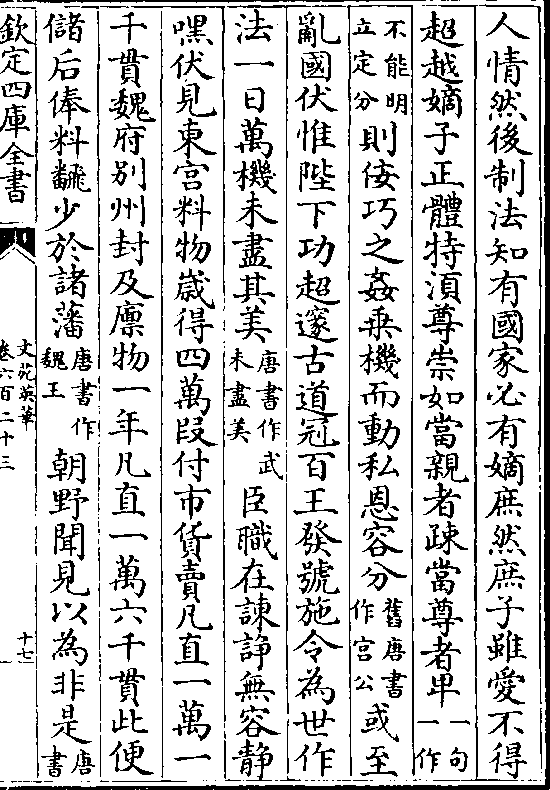 人情然後制法知有國家必有嫡庶然庶子雖愛不得
超越嫡子正體特湏尊崇如當親者疎當尊者卑一句一作
不能明立定分則佞巧之姦乗機而動私恩容分舊唐書作宫公或至
亂國伏惟陛下功超邃古道冠百王發號施令為世作
法一日萬機未盡其美唐書作武未盡美臣職在諫諍無容静
嘿伏見東宫料物嵗得四萬段付市貨賣凡直一萬一
千貫魏府别州封及廩物一年凡直一萬六千貫此便
儲后俸料飜少於諸藩唐書作魏王朝野聞見以為非是唐書
欽定四庫全書
文苑英華
卷六百二十三
十七